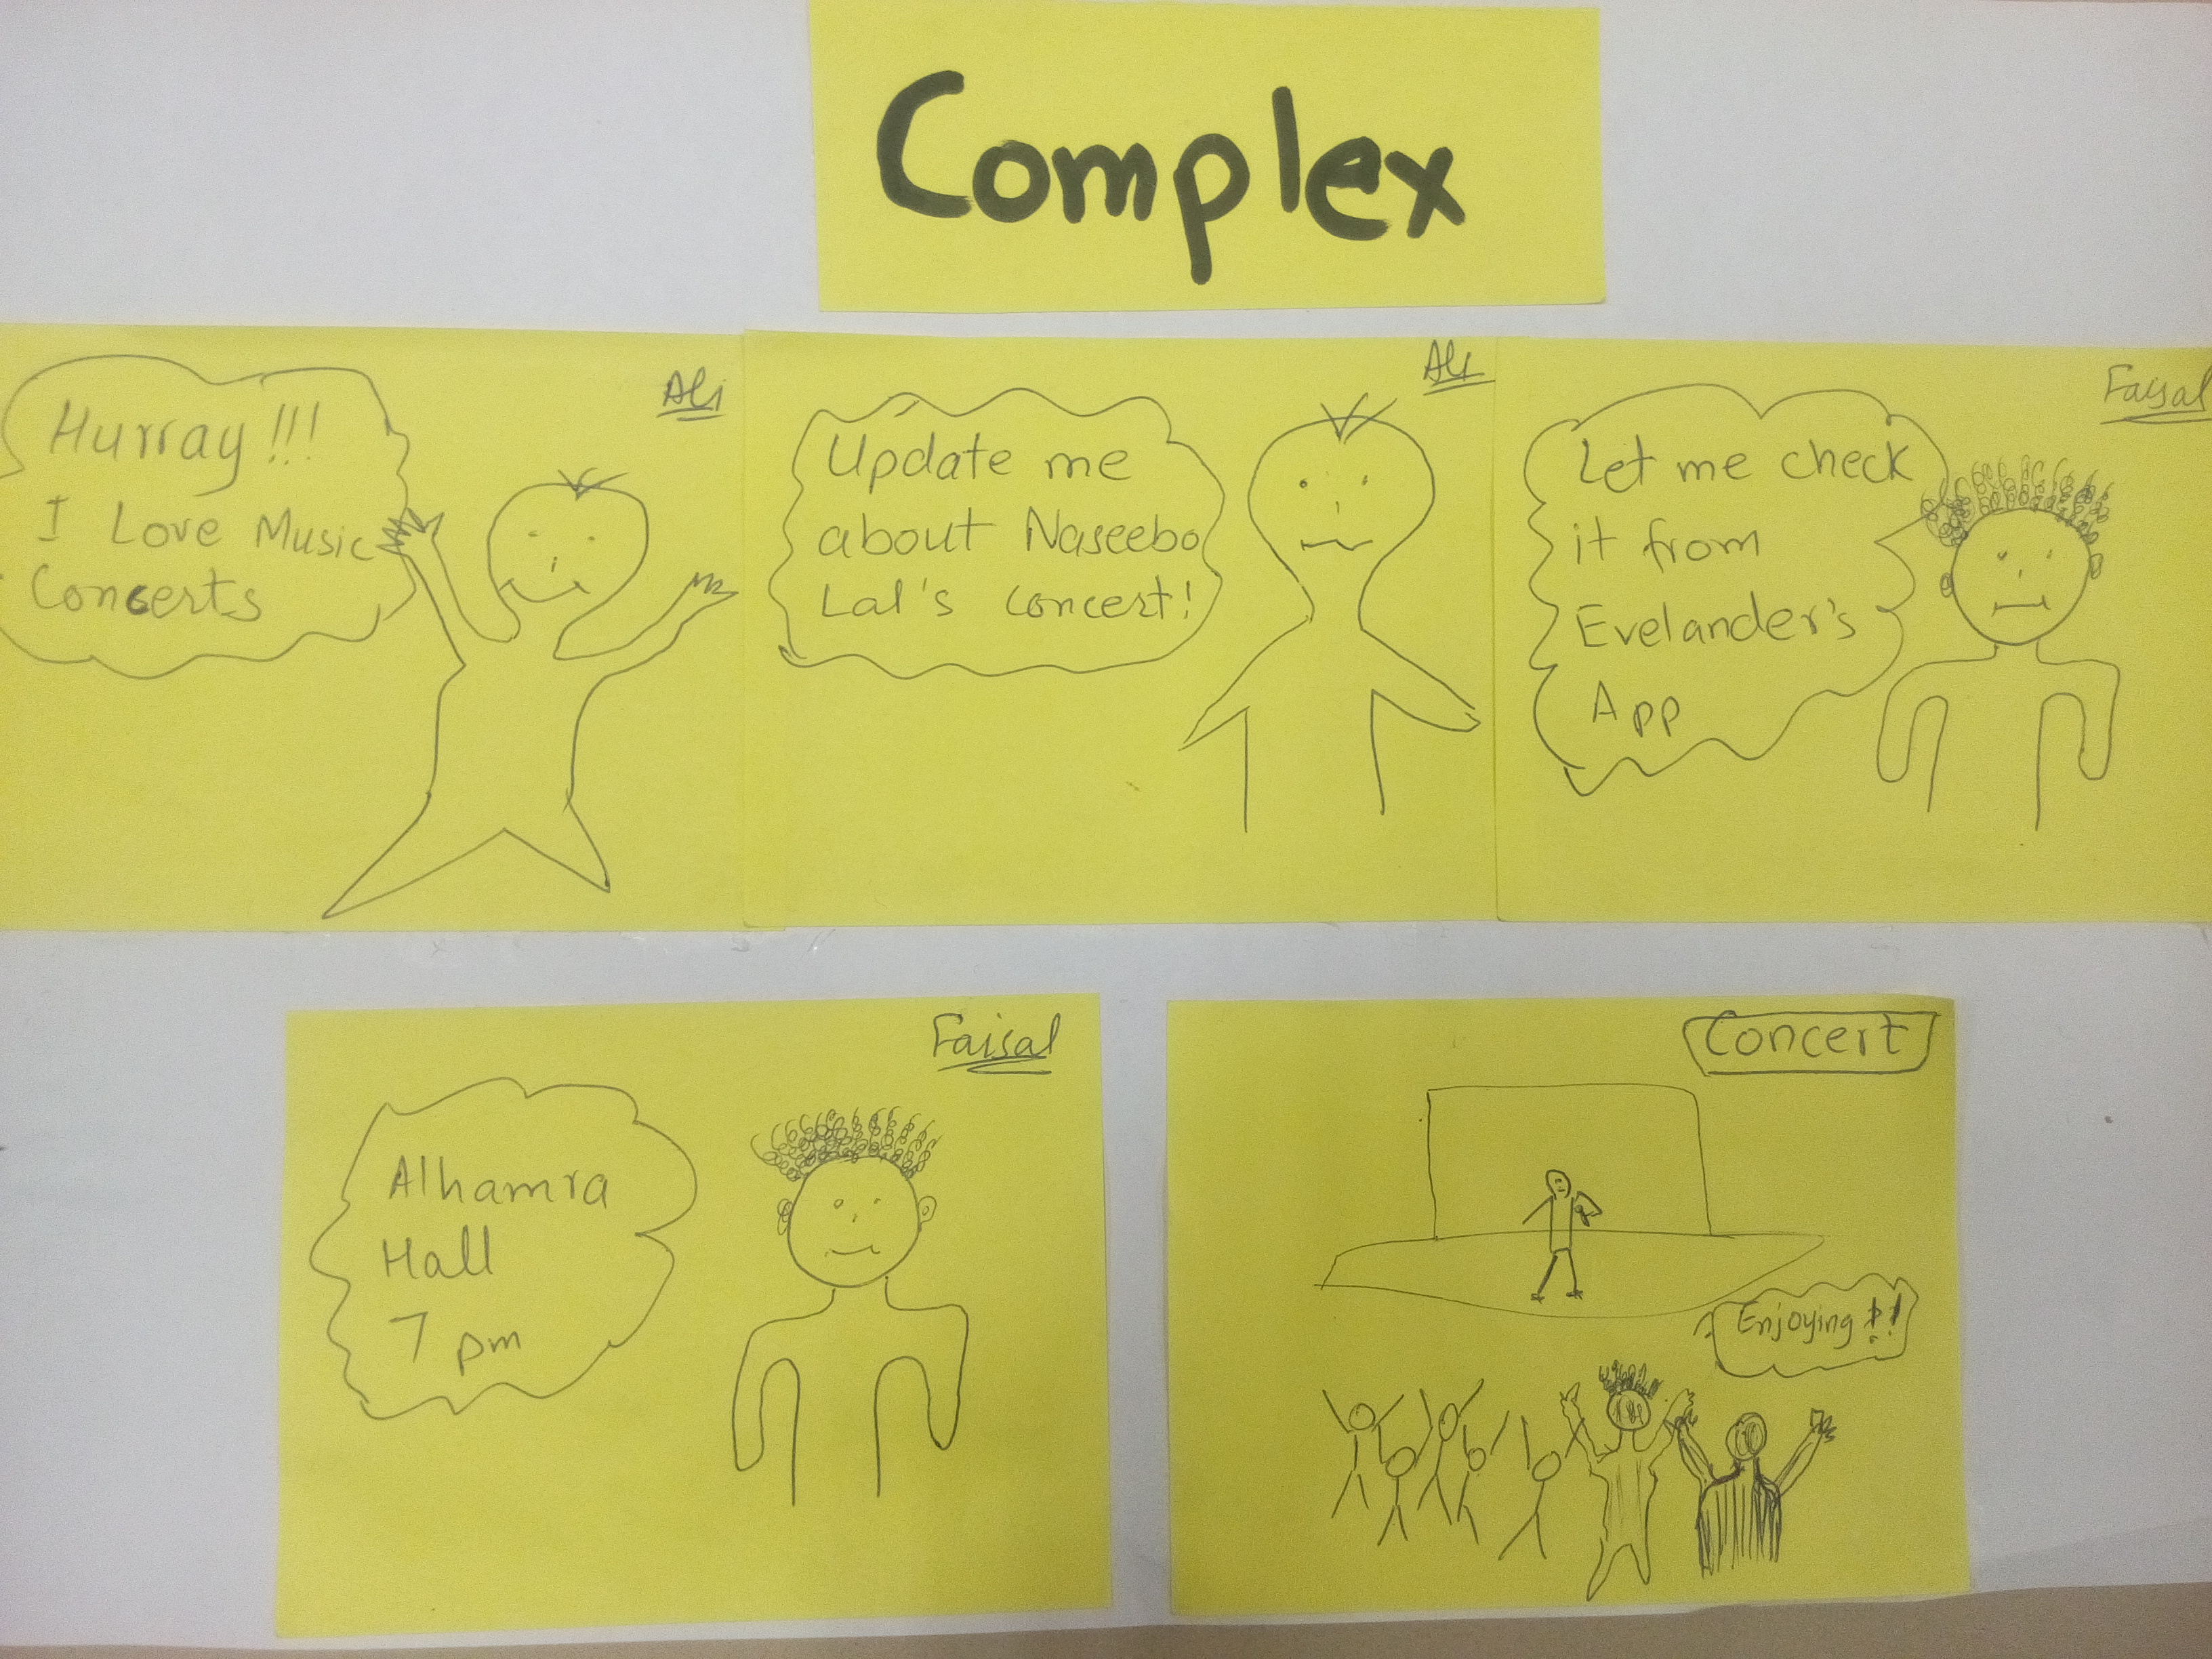 Complex
Ali
Hurray!!!
I Love Music
Concerts
Ali
Update me
about Naseebo
Lal's concert!
Faisal
Let me check
it from
Evelander's
App
Faisal
Alhamra
Hall
7 pm
Concert
Enjoying!!